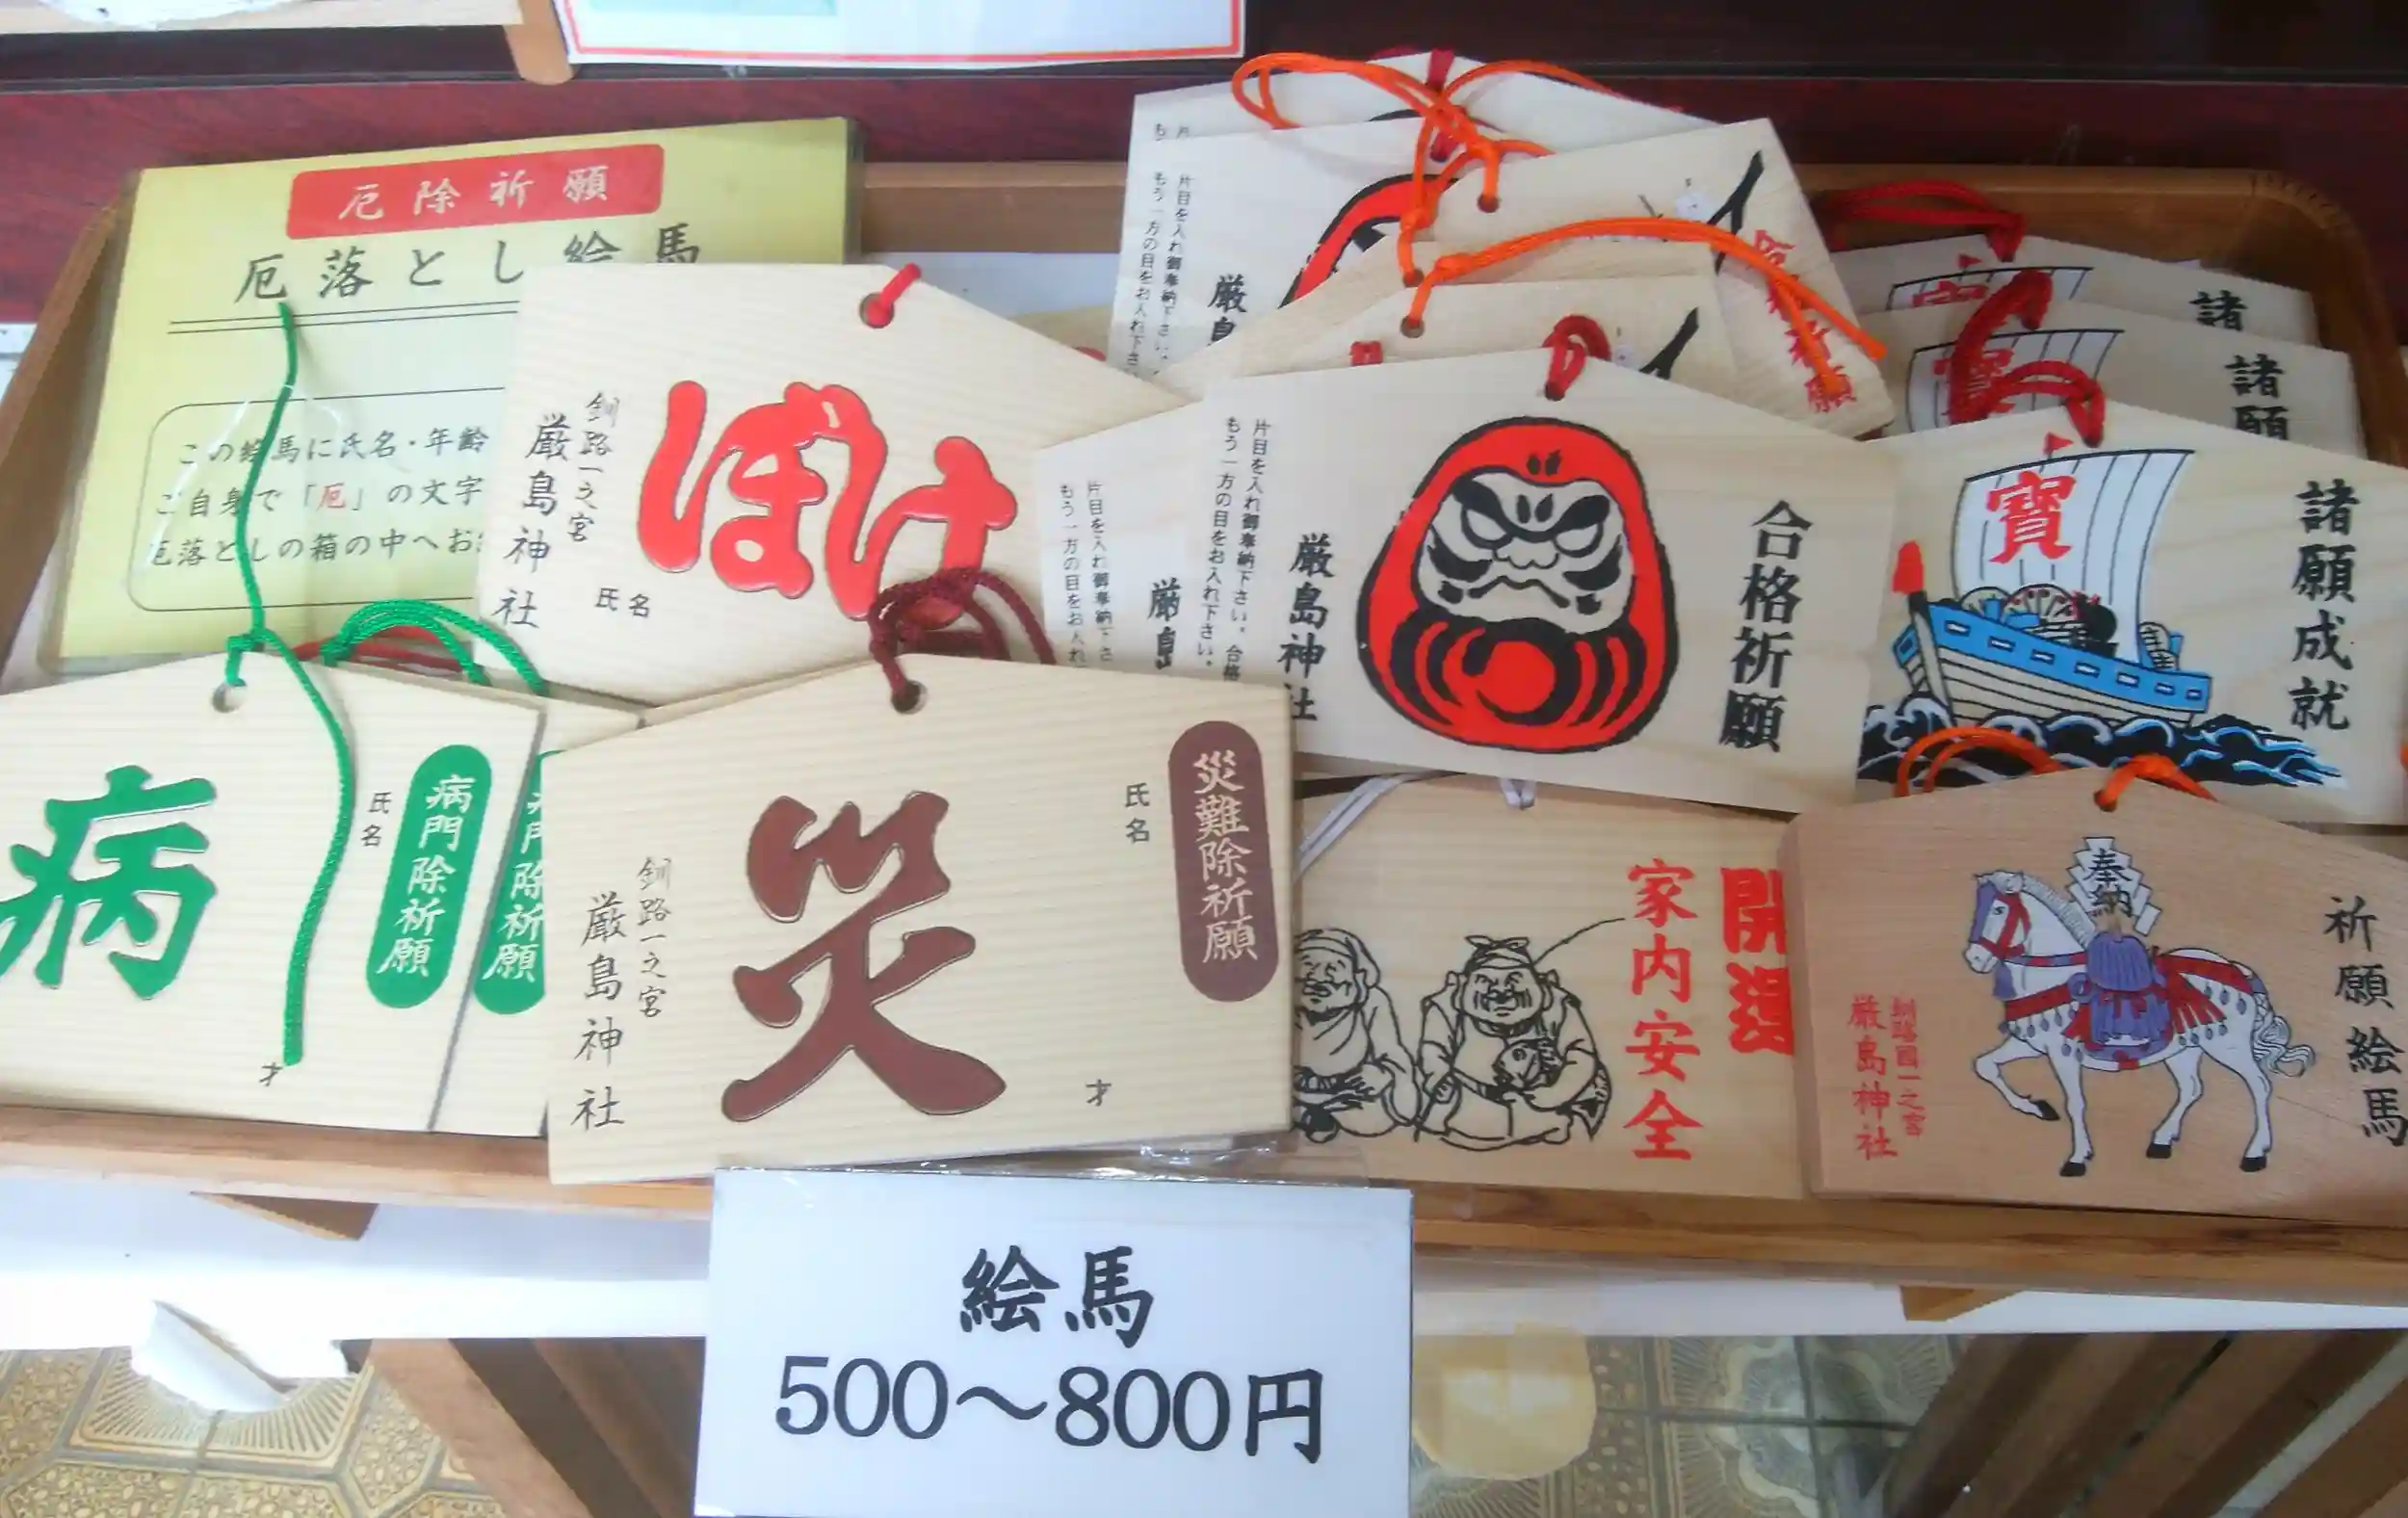 厄除祈願
厄落とし絵馬
この絵馬に氏名・年齢
ご自身で「厄」の文字
厄落としの箱の中へお
ぼけ
釧路一之宮
厳島神社
氏名
病
氏名
病門除祈願
才
病門除祈願
災難除祈願
氏名
災
釧路一之宮
厳島神社
才
片目を入れ御奉納下さい。
もう一方の目をお入れ下さ
厳島
祈願
片目を入れ御奉納下さ
もう一方の目をお入れ
厳島
合格祈願
片目を入れ御奉納下さい。合格
もう一方の目をお入れ下さい。
厳島神社
諸
寶
諸願
寶
諸願成就
寶
開運
家内安全
祈願絵馬
奉納
釧路國一之宮
厳島神社
絵馬
500～800円